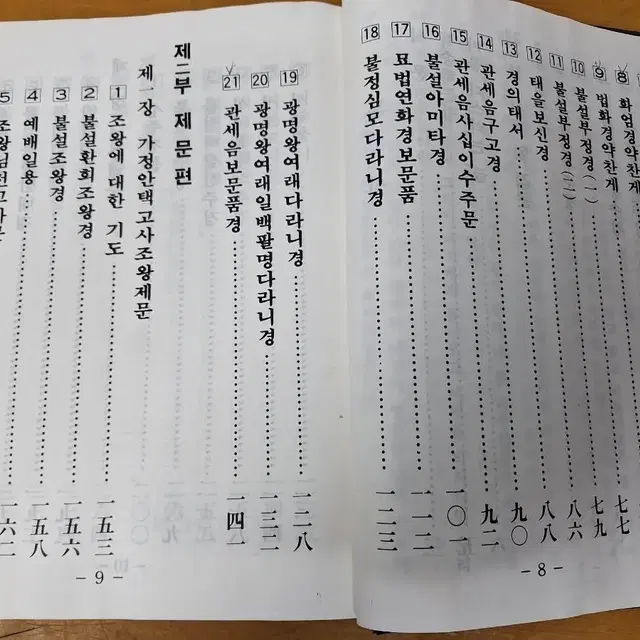 8 화엄경약찬게
9 법화경약찬게 七七
10 불설부정경(一) 七九
11 불설부정경(二) 八六
12 태을보신경 八八
13 경의태서 九〇
14 관세음구고경 九二
15 관세음사십이수주문 一〇一
16 불설아미타경
17 묘법연화경보문품 一一二
18 불정심모다라니경 一二三
- 8 -
19 광명왕여래다라니경 一二八
20 광명왕여래일백팔명다라니경 一三二
21 관세음보문품경 一四一
제二부 제문편
제一장 가정안택고사조왕제문
1 조왕에 대한 기도 一五三
2 불설환희조왕경
3 불설조왕경 一五六
4 예배일용 一五八
5 一六二
- 9 -